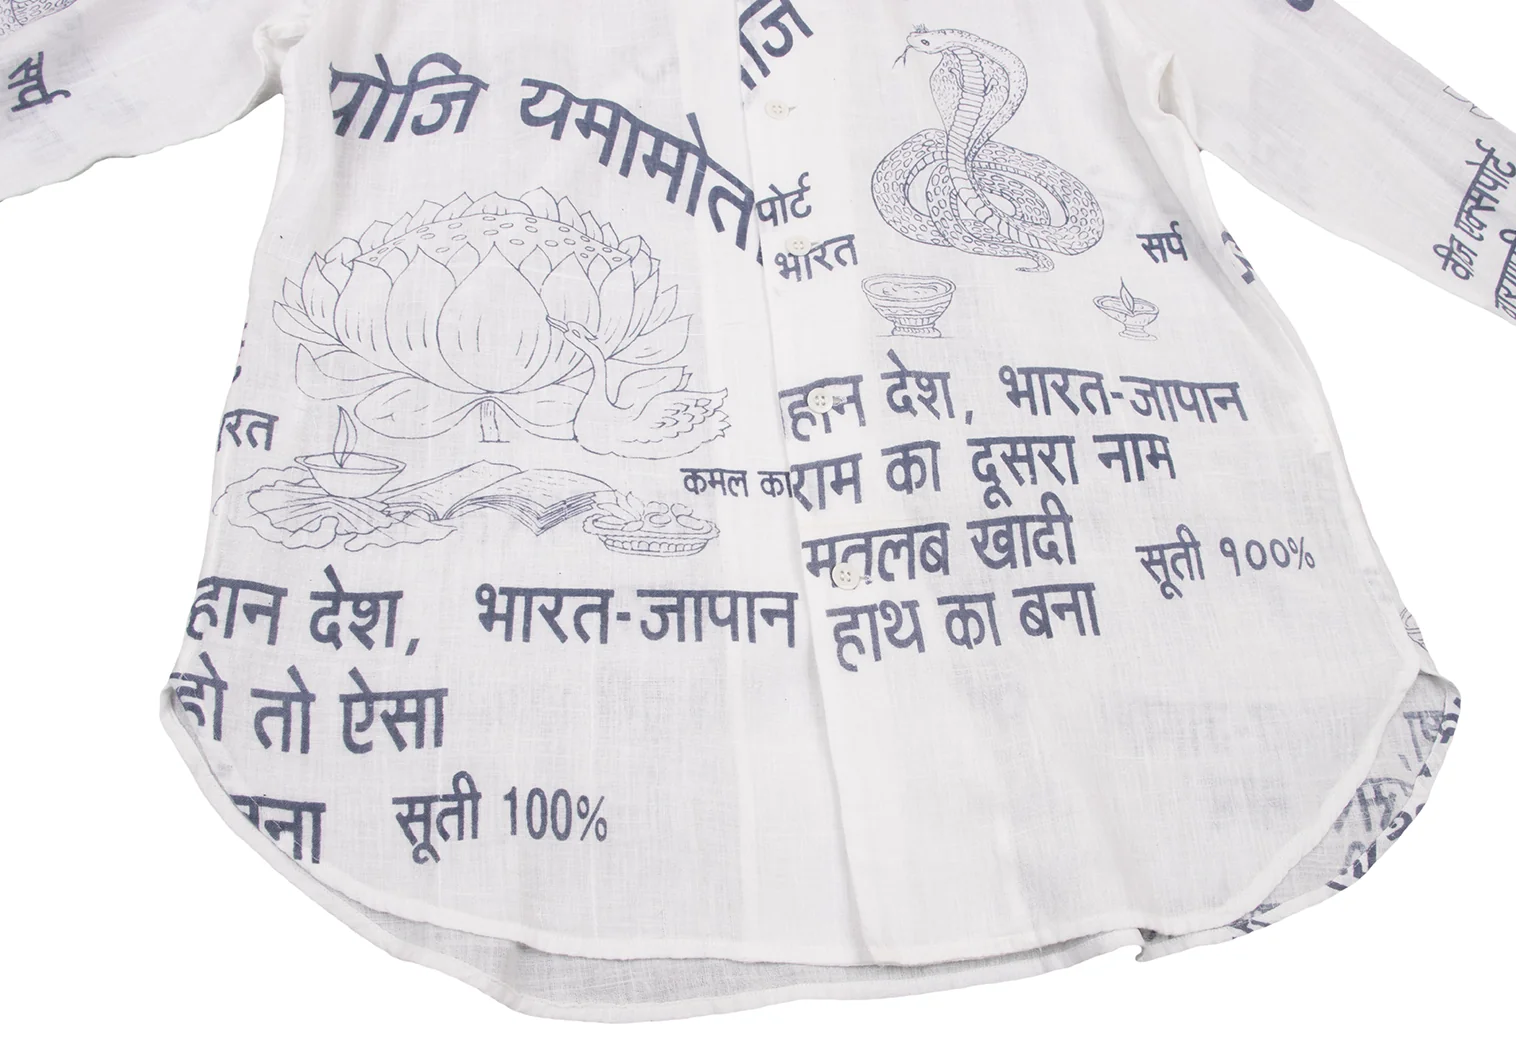 योजि यमामोत
पोर्ट
भारत
सर्प
वीज एक्सपोर्ट
रत
हान देश, भारत-जापान
राम का दूसरा नाम
कमल का
मतलब खादी
सूती १००%
हाथ का बना
हान देश, भारत-जापान
हो तो ऐसा
सूती 100%